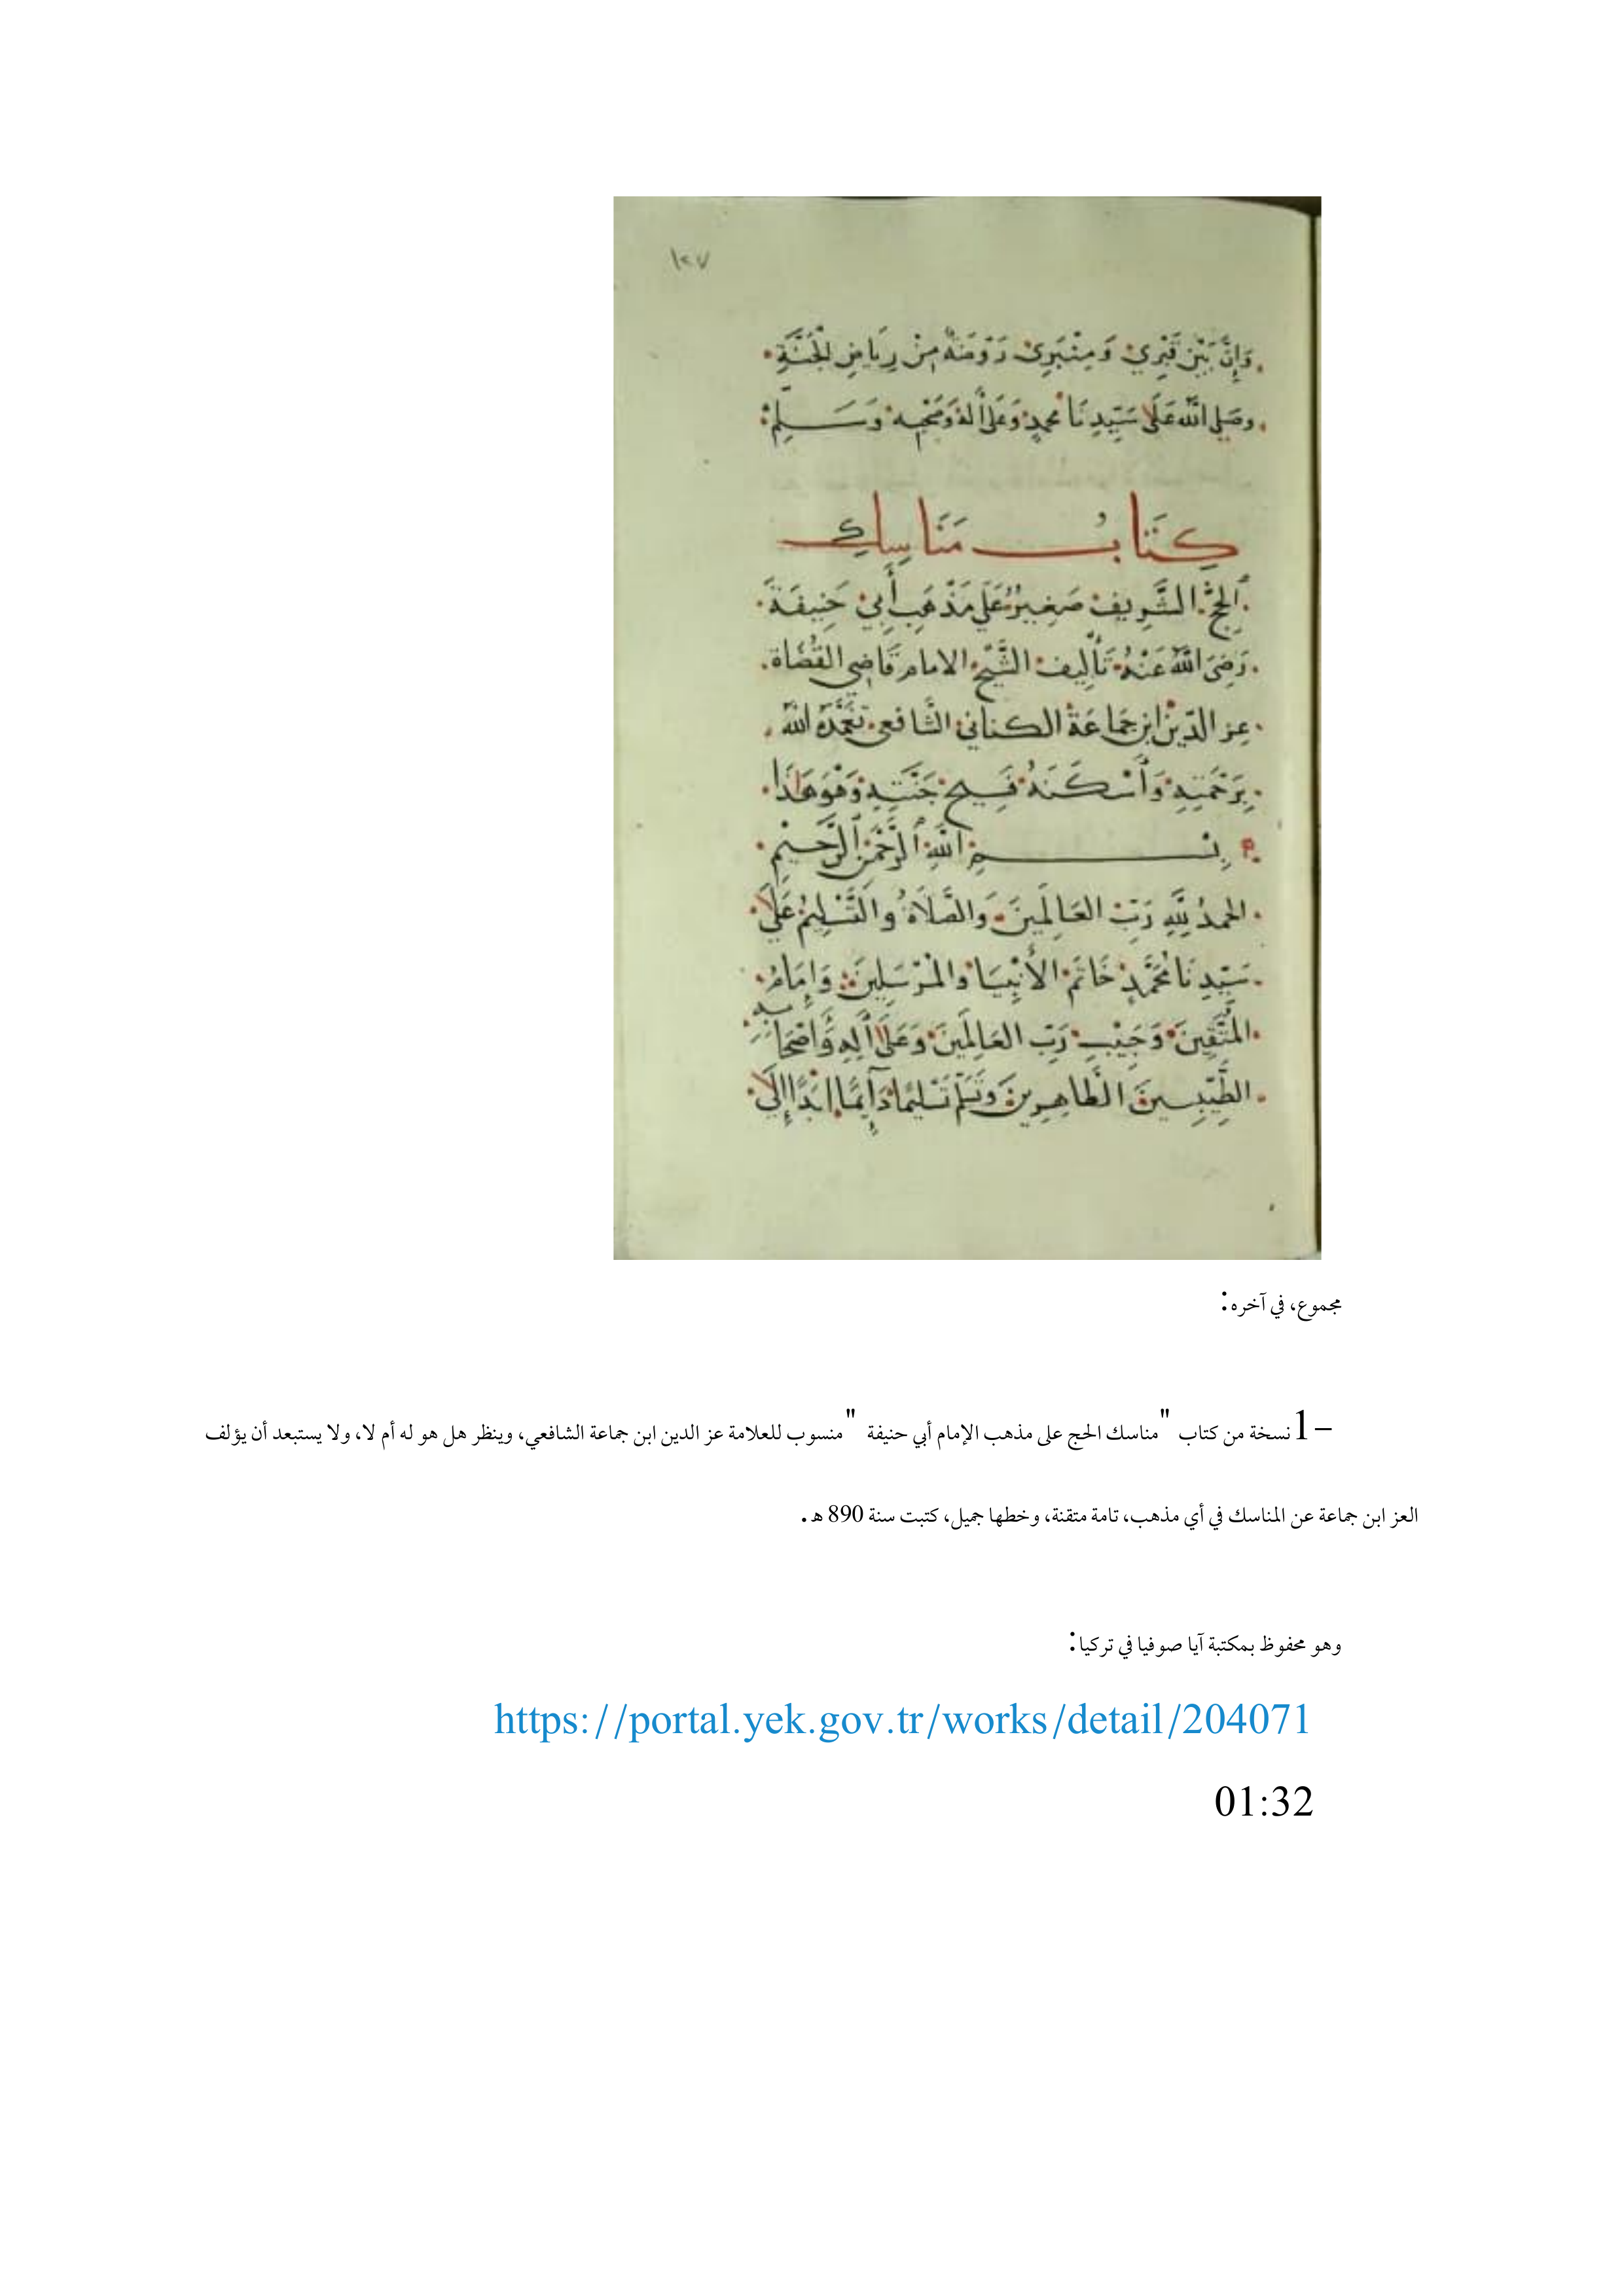 ١٢٧
وَإِنَّ بَيْنَ قَبْرِي وَمِنْبَرِي رَوْضَةٌ مِنْ رِيَاضِ الْجَنَّةِ
وصَلى اللهُ عَلَى سَيِّدِنَا محمدٍ وَعَلَى أله وَصَحْبِه وَسَلِّم
كِتَابُ مَنَاسِكِ
الحَجِّ الشَّرِيف صَغِيرٌ عَلَى مَذْهَبِ أَبِي حَنِيفَةَ
رَضِيَ اللهُ عَنْهُ تَأْلِيف الشَّيْخ الامام قَاضِي القُضَاة
عِز الدّين ابن جَمَاعَة الكناني الشَّافعي تغَمَّدَهُ اللهُ
بِرَحْمَتِهِ وَأَسْكَنَهُ فَسِيح جَنَّتِهِ وَهُوَ هَذَا
بِسْمِ اللَّهِ الرَّحْمَنِ الرَّحِيْمِ
الحمدُ لِلَّهِ رَبِّ العَالَمِينَ وَالصَّلَاةُ والتَّسْلِيمُ عَلَى
سَيِّدِنَا مُحَمَّدٍ خَاتَم الأَنْبِيَا وَالمُرْسَلِينَ وَإِمَامِ
المُتَّقِينَ وَحَبِيْبِ رَبِّ العَالَمِينَ وَعَلَى أَلِهِ وَأَصْحَابِهِ
الطَّيِّبِينَ الطَّاهِرِينَ وَسَلِّمْ تَسْلِيمًا دَآئِمًا ابَدًا إِلَى
مجموع، في آخره:
1– نسخة من كتاب "مناسك الحج على مذهب الإمام أبي حنيفة" منسوب للعلامة عز الدين ابن جماعة الشافعي، وينظر هل هو له أم لا، ولا يستبعد أن يؤلف
العز ابن جماعة عن المناسك في أي مذهب، تامة متقنة، وخطها جميل، كتبت سنة 890 هـ.
وهو محفوظ بمكتبة آيا صوفيا في تركيا:
https://portal.yek.gov.tr/works/detail/204071
01:32